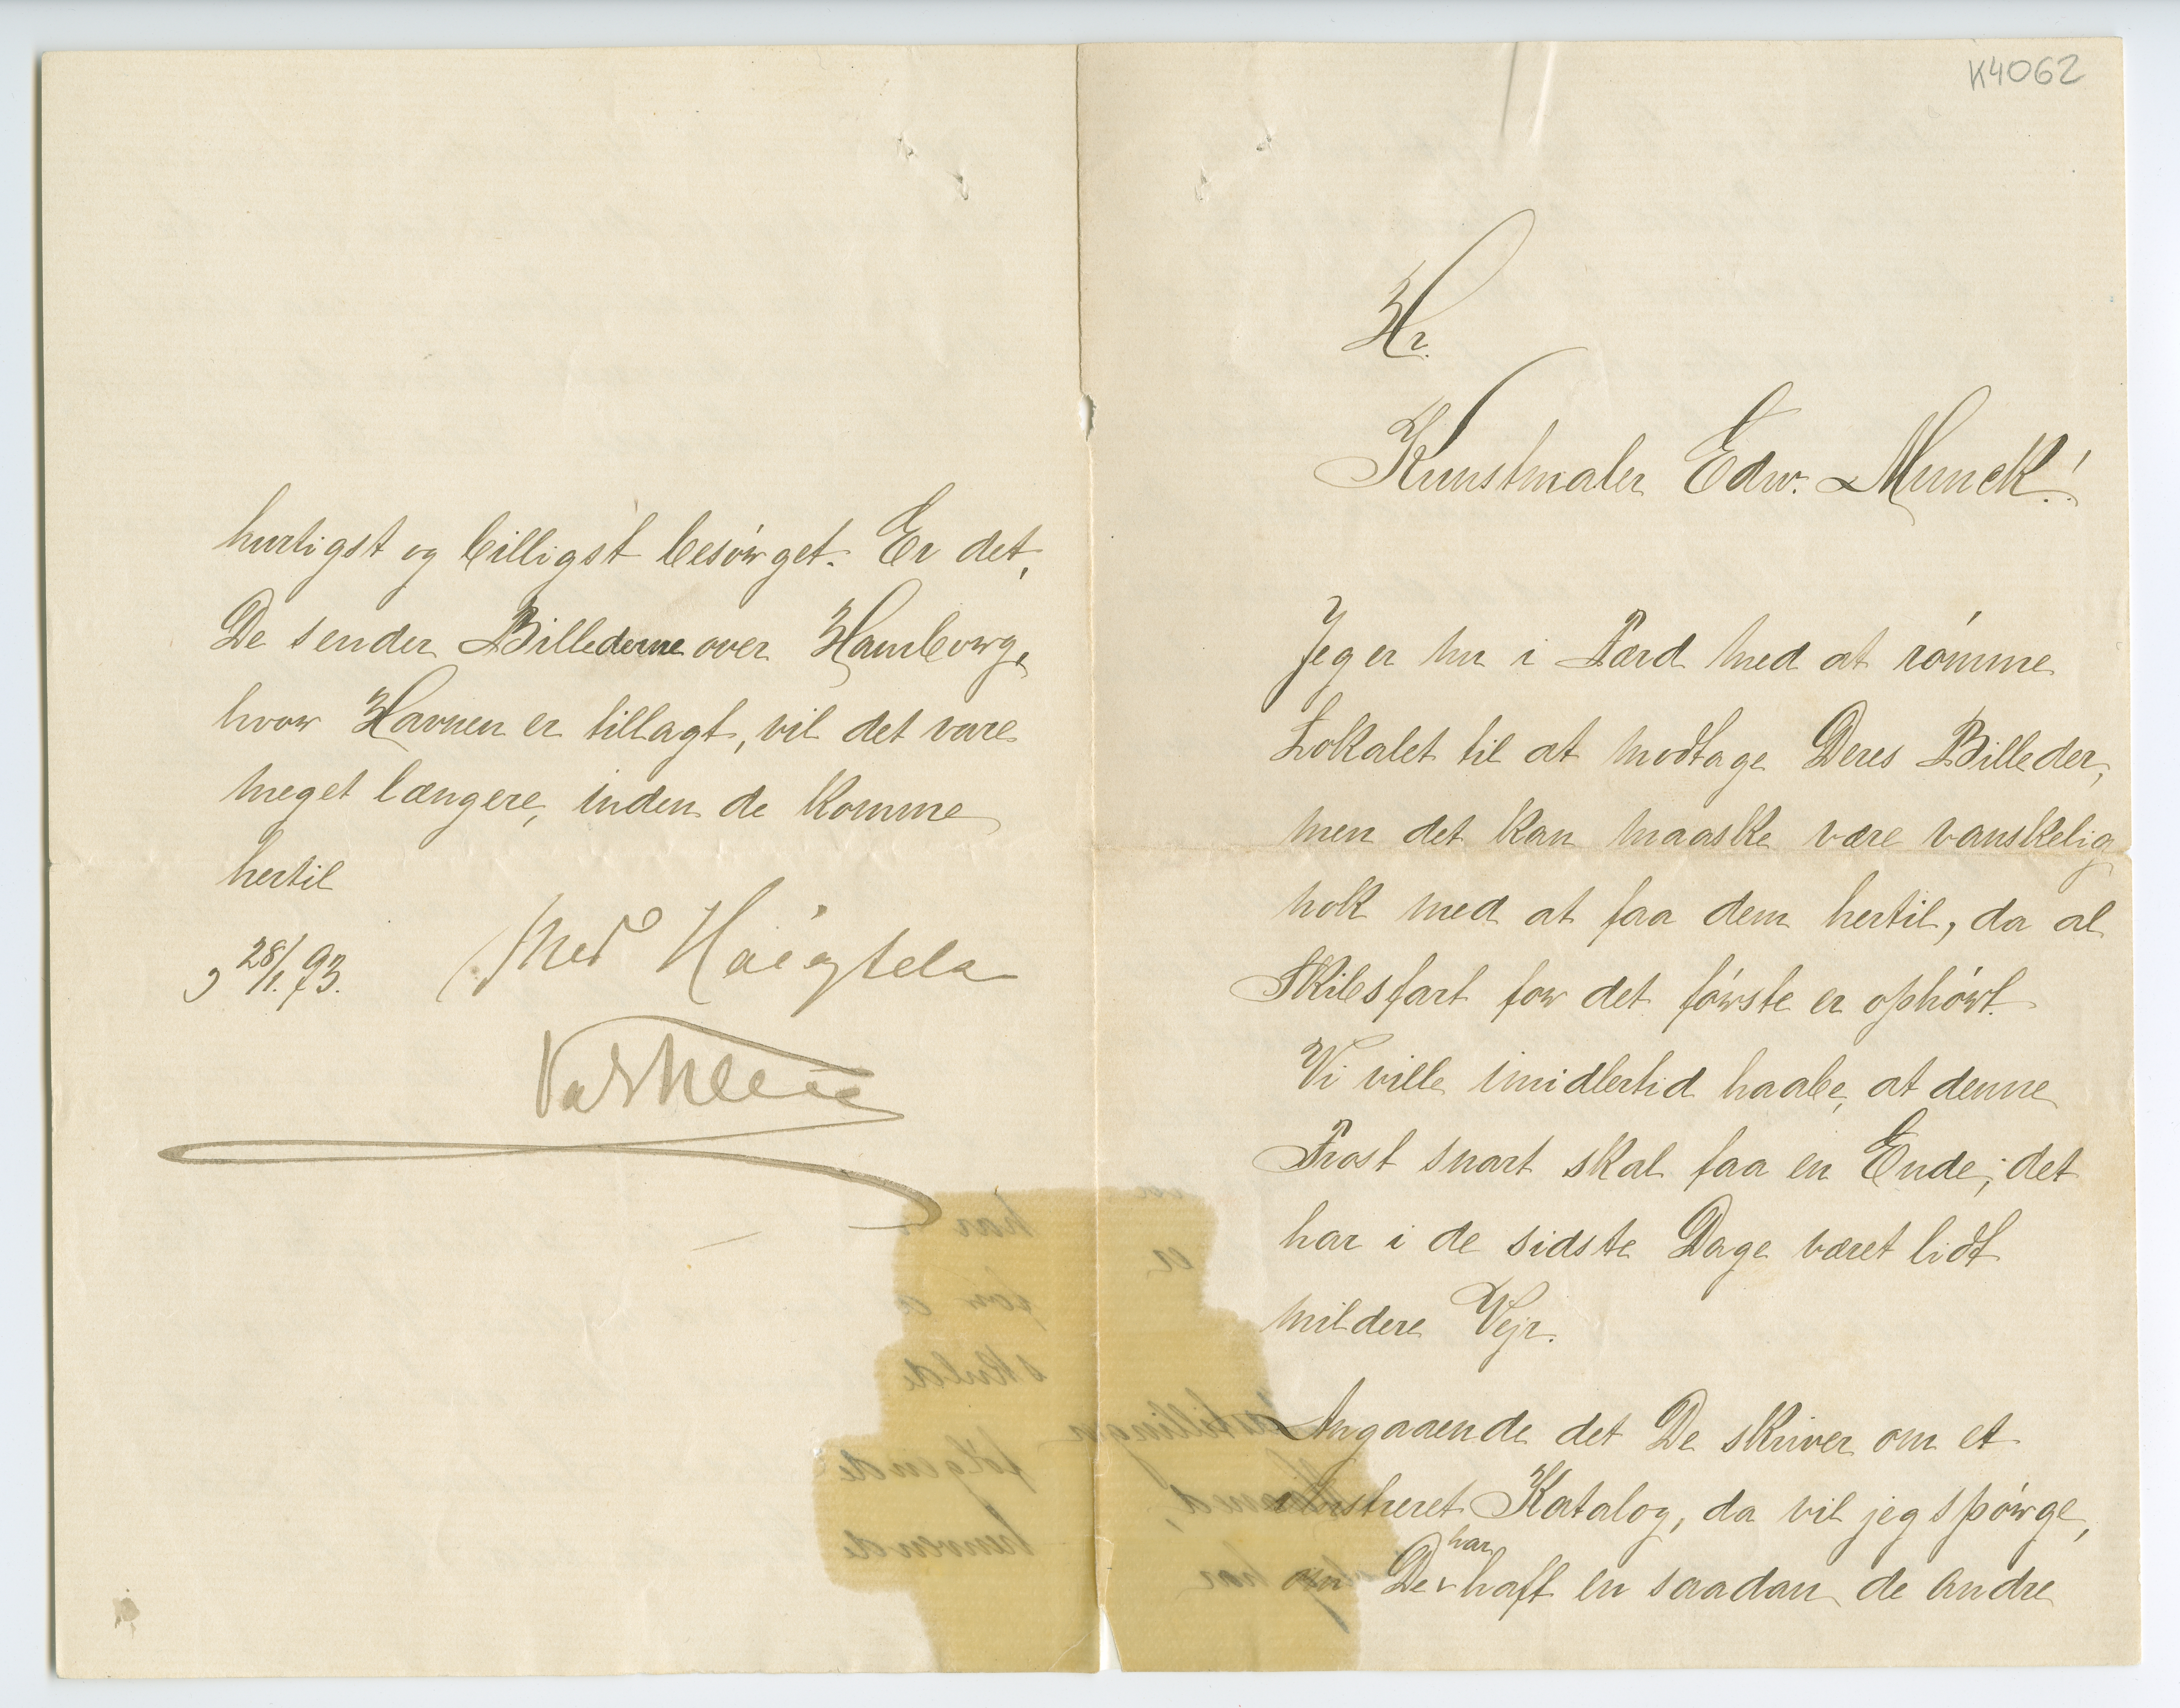 K4062
Hr.
Kunstmaler Edw. Munck!
Jeg er nu i Færd med at römme
Lokalet til at modtage Deres Billeder,
men det kan maaske være vanskelig
nok med at faa dem hertil, da al
Skibsfart for det förste er ophört.
Vi ville imidlertid haabe, at denne
Frost snart skal faa en Ende; det
har i de sidste Dage været lidt
mildere Vejr.
Angaaende det De skriver om et
illustreret Katalog, da vil jeg spörge,
om De har haft en saadan de andre
hurtigst og billigst besörget. Er det,
De sender Billederne over Hamborg,
hvor Havnen er tillagt, vil det vare
meget længere, inden de komme
hertil
28/1. 93.
Med Höigtela
Val Kleis